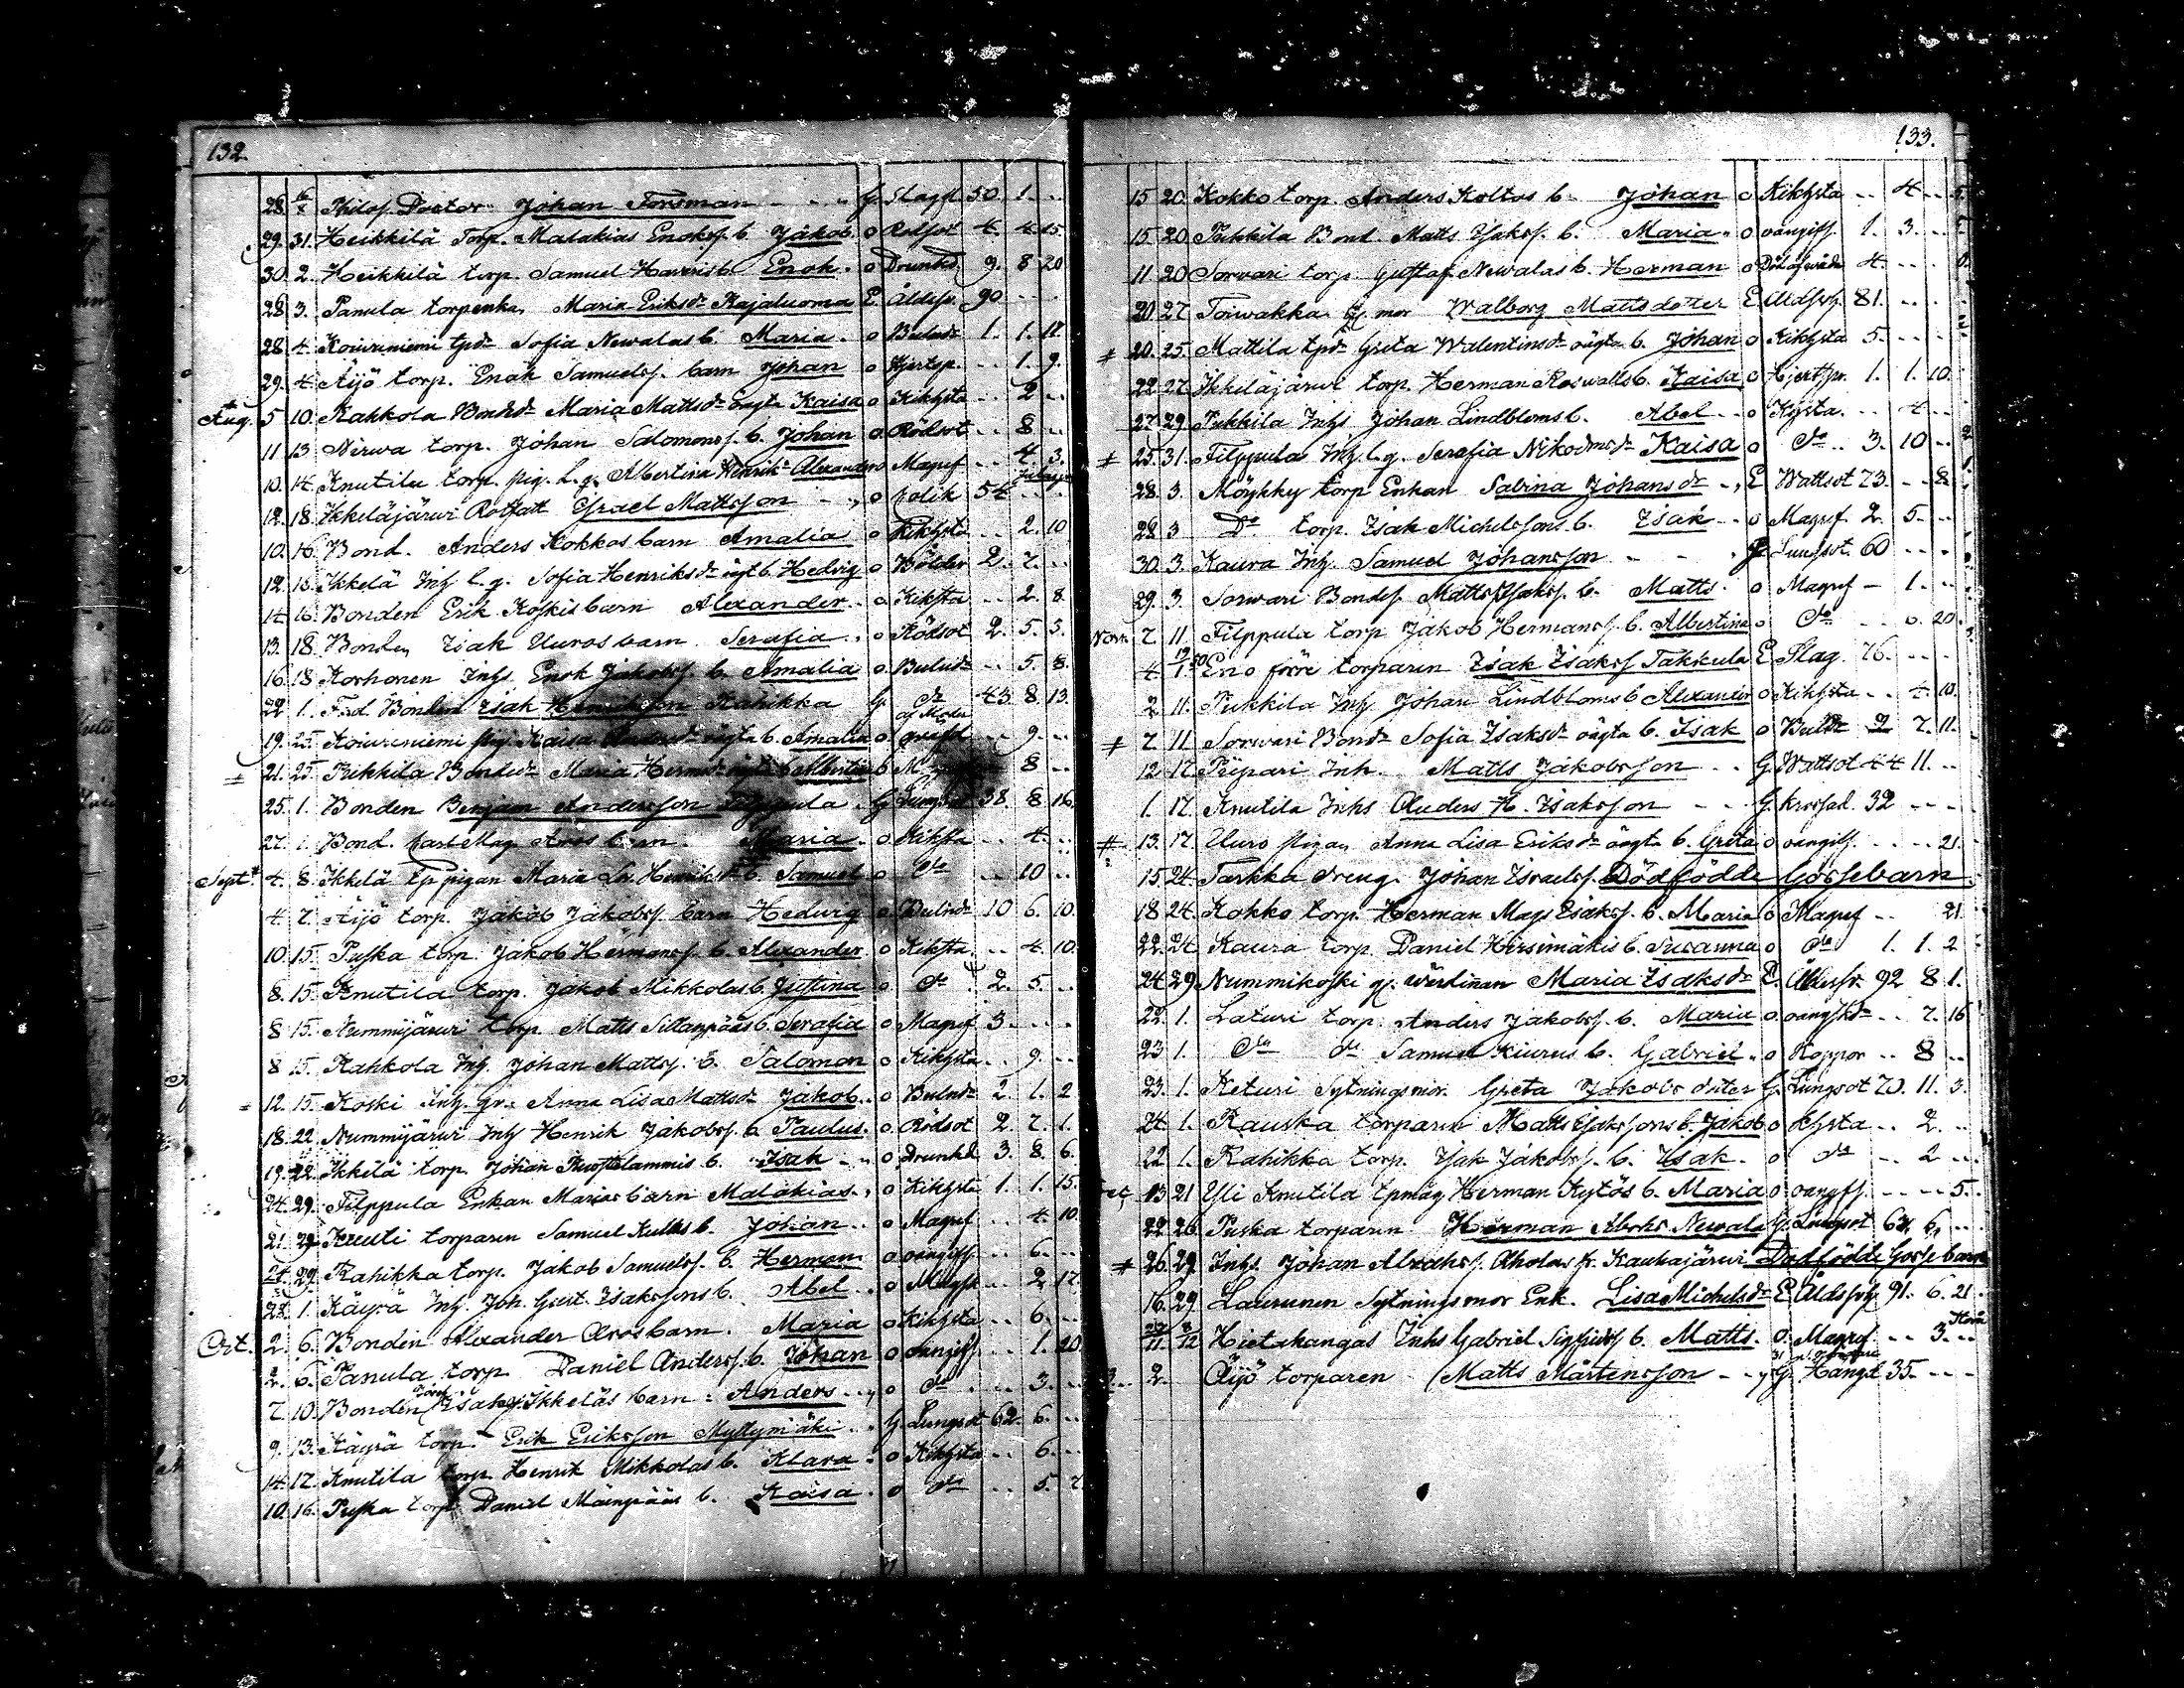 132.
28. 6/8 Philos. Doctor Johan Forsman - - - G. Slagfl 50 1. - -
29. 31. Heikkilä Torp. Malakias Enoksf. b. Jakob o Rödsot 4. 4. 15.
30. 2. Heikkilä torp. Samuel Haveris b. Enok. o Drunkd. 9. 8 20
28. 3. Panula torpenkan Maria Eriksdr Kajaluoma E. Åldsv. 90 - - -
28 4. Koivuniemi tpdr Sofia Newalas b. Maria. o Bulndr 1. 1. 17.
29. 4. Äijö torp. Enok Samuelsf. barn Johan o Hjertsp. - - 1. 9.
Aug. 5 10. Kahkola Bondr Maria Mattsdr oägta Kaisa o Kikhsta - - 2 - -
11 13 Nirwa torp. Johan Salomonsf. b. Johan o Rödsot - - 8 - -
10. 14. Knutila torp. pig. l. q. Albertina Henriksdr Alexander o Magref - - 4. 3.
12. 18. Ikkeläjärwi Rotfatt. Israel Mattsson - - , o kolik 54 - - -
10. 16. Bond. Anders Kokkos barn Amalia o Kikhsta - - 2. 10
12. 16. Ikkelä Inh. l. q. Sofia Henriksdr oägt b. Hedvig o Bölder 2. 7. - -
14 16. Bonden Erik Koskis barn Alexander. o Kikhsta - - 2. 8.
13. 18. Bonden Isak Uuros barn Serafia. o Rödsot 2. 5. 3.
16. 18 Korhonen Inhs Enok Jakobsf. b. Amalia o Bulndr - - 5. 8.
22 1. F.d. Bonden Isak Rahikka G. do 43 8 13.
19. 25. Koivuniemi pig. Kaisa oägta b. Amalia o - - 9. - -
= 21. 25. Pukkila Bondedr Maria Hermsdr oägta b. Albertina o - - 8 - -
25. 1. Bonden Benjam Andersson Filppula G. Lungsot 38. 8 16.
27. 1. Bond. Karl Mag. Aros barn Maria. o Kikhsta - - 4. - -
Sept. 4. 8. Ikkelä tp pigan Maria L. Henriksdr b. Samuel o do - - 10 - -
4 7. Äijö torp. Jakob Jakobsf. barn Hedwig o Bulndr 10 6. 10.
10. 15. Puska torp. Jakob Hermansf. b. Alexander o Kikhsta - - 4. 10.
8. 15. Knutila torp. Jakob Mikkolas b. Justina o do 2. 5. - -
8 15. Nummijärwi torp. Matts Sillanpääs b. Serafia o Magref 3 - - -
8 15. Kahkola Inh. Johan Mattsf. b. Salomon o Kikhsta - - 9. - -
= 12. 15. Koski Inh. qv. Anna Lisa Mattsdr Jakob. o Bulndr 2. 1. 2
18. 22. Nummijärwi Inhs Henrik Jakobsf. b. Paulus. o Rödsot 2. 7. 1.
19. 22. Ikkilä torp. Johan b. Isak - - o Drunkd. 3. 8. 6.
24. 29. Filppula Enkan Marias barn Malakias. o Kikhsta 1. 1. 15.
21. 29 torparen Samuel b. Johan o Magref - - 4. 10.
24. 29. Rahikka torp. Jakob Samuelsf. b. Herman o oangifv - - 6. - -
28. 1. Käyrä Inh. Joh. Gust. Isakssons b. Abel o Magref - - 2 17.
Oct. 2. 6. Bonden Alexander Aros barn. Maria o Kikhsta - - 6. - -
2. 6. Panula torp. Daniel Andersf. b. Johan o oangifv. - - 1. 20.
7. 10. Bonden Isak Ikkeläs barn Anders o do - - 3. - -
9. 13. Käyrä torp. Erik Eriksson Myllymäki G. Lungsot 62. 6. - -
14. 17. Knutila torp. Henrik Mikkolas b. Klara o Kikhsta - - 6. - -
10. 16. Puska torp. Daniel Mäenpääs b. Kaisa o do - - 5. 7.
133.
15 20. Kokko torp. Anders Koltos b. Johan o Kikhsta - - 4 - -
15 20 Pukkila Bond. Matts Isaksf. b. Maria o oangifv. 1. 3. - -
11 20 Sorwari torp. Gustaf Newalas b. Herman o 4. - - -
20. 27. Toiwakka mor Walborg Mattsdotter E Åldsv. 81. - - -
# 20. 25. Mattila tpdr Greta Walentinsdr oägta b. Johan o Kikhsta 5. - - -
22 27. Ikkeläjärwi torp. Herman Roswalls b. Kaisa o Hjertspr. 1. 1. 10.
27. 29. Pukkila Inhs Johan Lindbloms b. Abel - - o Khsta. - - 4. - -
# 25. 31. Filppula Inh. l. q. Serafia Nikodmsdr Kaisa o do - - 3. 10 - -
28. 3. Möykky torp Enkan Sabina Johansdr - , E Wattsot 73. - - 8.
28 3 Do torp. Isak Michelssons b. Isak - - o Magref. 2. 5. - -
30. 3. Kaura Inh. Samuel Johansson - - G Lungsot. 60 - - -
29. 3. Sorwari Bondes. Matts Isaksf. b. Matts. o Magref - 1. - -
Nov. 7. 11. Filppula torp. Jakob Hermansf. b. Albertina o do - - 0. 20.
4. Eno förre torparen Isak Isaksf Takkula E Slag. 76. - - -
2 11. Pukkila Inh. Johan Lindbloms b. Alexander o Kikhsta - - 4. 10.
# 7. 11. Sorwari Bondr Sofia Isaksdr oägta b. Isak o Bulndr 2 7. 11.
12. 17. Piipari Inh. Matts Jakobsson - - G. Wattsot 44 11. - -
1. 17. Knutila Inhs Anders H. Isaksson - - G. 32 - - -
# 13. 17. Uuro pigan Anna Lisa Eriksdr oägta b. Greta o oangifv. - - - - 21.
15. 24. Tarkka dreng. Johan Israelsf. Dödfödde Gossebarn.
18 24. Kokko torp. Herman Mags Isaksf. b. Maria o Magref - - 21.
22. 24. Kaura torp. Daniel Hirsimäkis b. Susanna o do 1. 1. 2
24 29 Nummikoski gl. wärdinnan Maria Isaksdr E. Åldersv. 92 8 1.
22. 1. Laturi torp. Anders Jakobsf. b. Maria o - - 7. 16
23 1. do do Samuel Kiurus b. Gabriel. o Koppor - - 8 - -
23. 1. Keturi Sytningsmor. Greta Jakobsdoter G. Lungsot 70. 11. 3.
24. 1. Rauska torparen Matts Isakssons b. Jakob o Khsta - - 2. - -
22 1. Rahikka torp. Isak Jakobsf. b. Isak. o do - - 2 - -
13 21 Yli Knutila tpmåg Herman Kytös b. Maria o oangifv. - - - - 5.
22 26 Puska torparen Herman Newala G. Lungsot 64. 6. - -
# 26. 29 Inhs. Johan Abrahsf. Aholas fr. Kauhajärwi Dödfödde Gossebarn
16. 29 Laurunen Sytningsmor Enk. Lisa Michelsdr E Åldsv. 91. 6. 21.
Hietakangas Inhs Gabriel Sigfridsf b. Matts. o. Magref - - 3. - -
2. Äijö torparen Matts Mårtensson - - G. Hängd 35. - - -